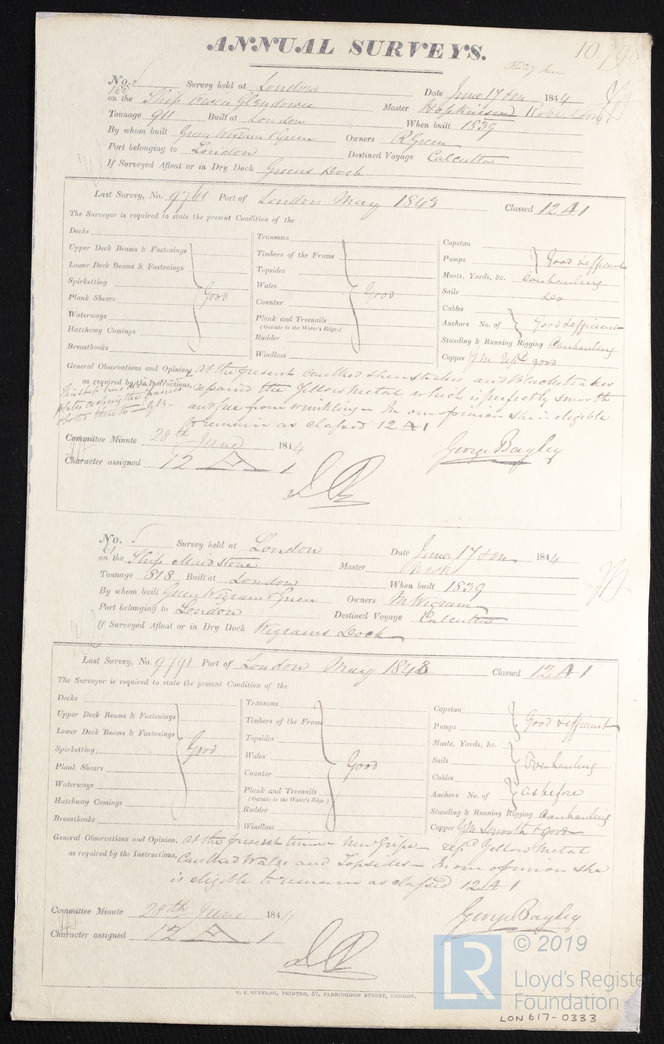 ANNUAL SURVEYS.
No. 166 Survey held at London Date June 17 1844
on the Ship Owen Glendower Master Hopkinson Robertson
Tonnage 911 Built at London When built 1839
By whom built Green Wigram & Green Owners R Green
Port belonging to London Destined Voyage Calcutta
If Surveyed Afloat or in Dry Dock Greens Dock
Last Survey, No. 9761 Port of London May 1843 Classed 12 A 1
The Surveyor is required to state the present Condition of the
Decks
Upper Deck Beams & Fastenings
Lower Deck Beams & Fastenings
Spirketting
Plank Shears
Waterways
Hatchway Comings
Breasthooks
Good
Transoms
Timbers of the Frame
Topsides
Wales
Counter
Plank and Treenails
(Outside to the Water's Edge.)
Rudder
Windlass
Good
Capstan
Pumps Good & efficient
Masts, Yards, &c. Overhauling
Sails Do
Cables
Anchors No. of Good & efficient
Standing & Running Rigging Overhauling
Copper YM repd good
General Observations and Opinion, at the present caulked sheerstrakes and blackstrakes
as required by the Instructions, repaired the Yellow Metal which is perfectly smooth
and free from wrinkling - In our opinion she is eligible
to remain as classed 12 A 1
Committee Minute 28th June 1844
Character assigned 12 A 1
George Bayley
No. 61 Survey held at London Date June 17 1844
on the Ship Maidstone Master
Tonnage 818 Built at London When built 1839
By whom built Green Wigram & Green Owners M Wigram
Port belonging to London Destined Voyage Calcutta
If Surveyed Afloat or in Dry Dock Wigrams Dock
Last Survey, No. 9791 Port of London May 1843 Classed 12 A 1
The Surveyor is required to state the present Condition of the
Decks
Upper Deck Beams & Fastenings
Lower Deck Beams & Fastenings
Spirketting
Plank Shears
Waterways
Hatchway Comings
Breasthooks
Good
Transoms
Timbers of the Frame
Topsides
Wales
Counter
Plank and Treenails
(Outside to the Water's Edge)
Rudder
Windlass
Good
Capstan
Pumps Good & efficient
Masts, Yards, &c.
Sails Overhauling
Cables
Anchors No. of as before
Standing & Running Rigging Overhauling
Copper YM smooth & good
General Observations and Opinion, at the present time New Gripe repd Yellow Metal
as required by the Instructions, Caulked Wales and Topsides - In our opinion she
is eligible to remain as classed 12 A 1
Committee Minute 28th June 1844
Character assigned 12 A 1
George Bayley
LR © 2019
Lloyd's Register
Foundation
LON 617-0333